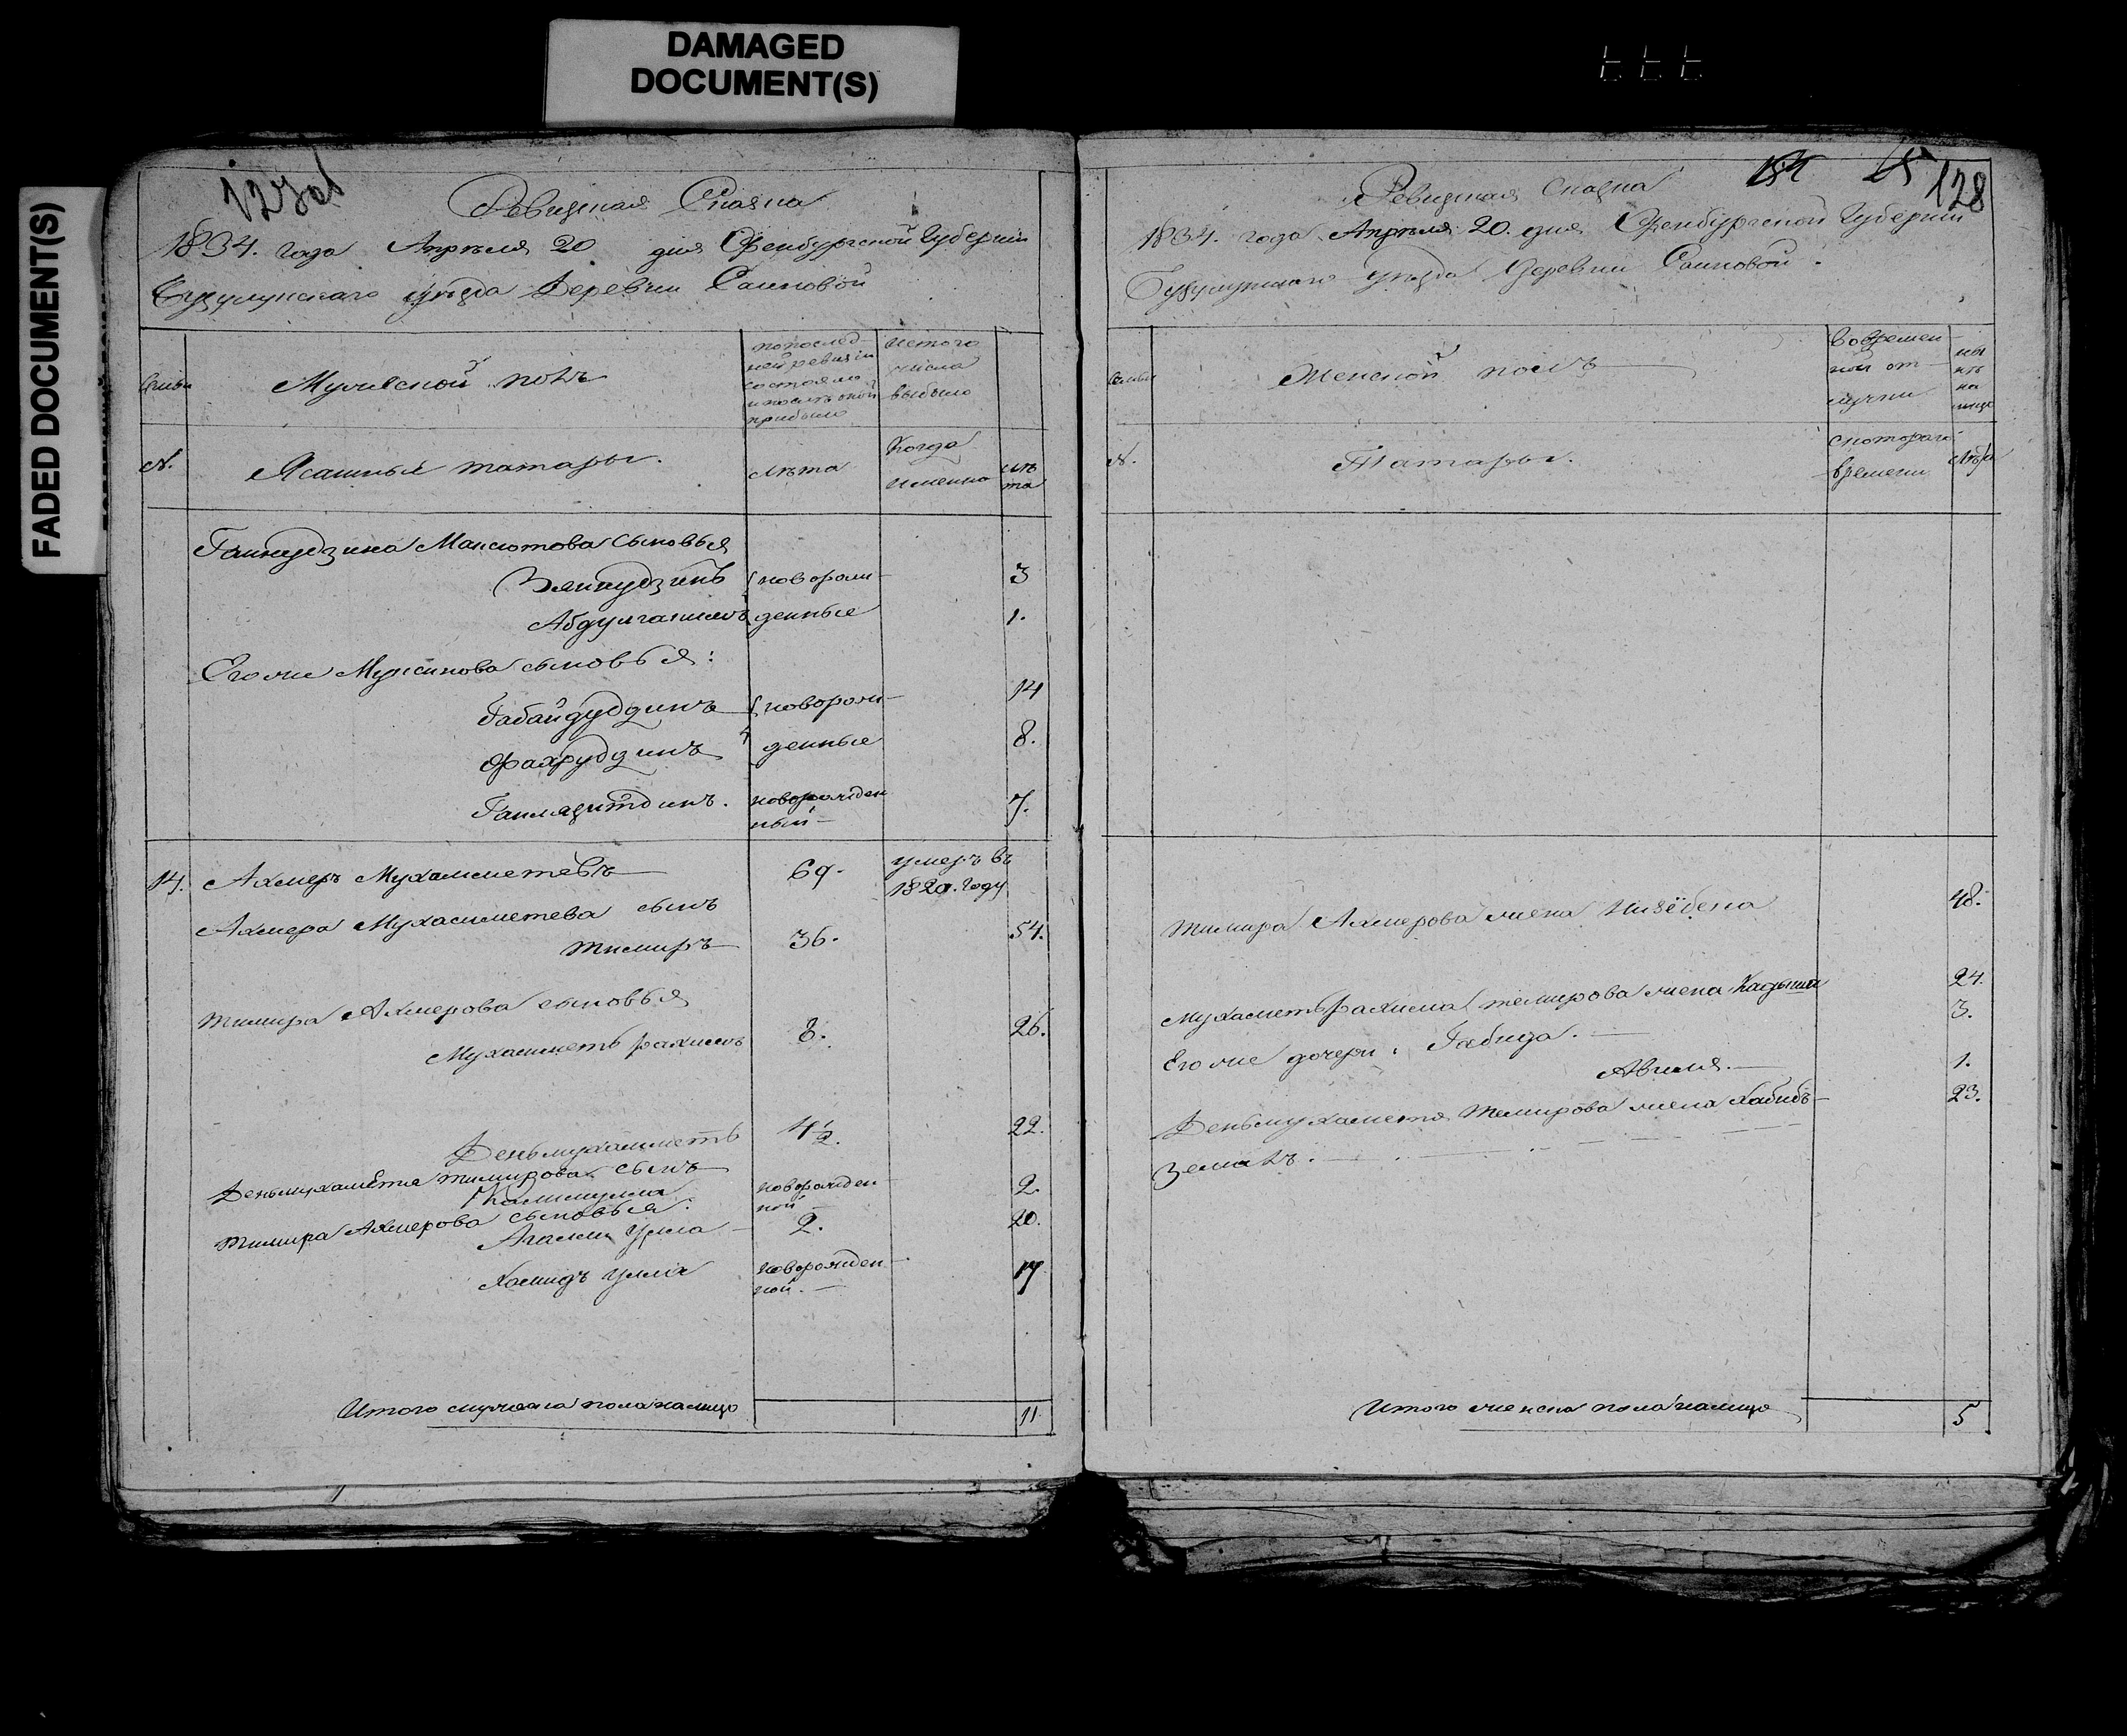 DAMAGED
DOCUMENT(S)
FADED DOCUMENT(S)
127об
Ревизская Сказка
1834. года Апреля 20 дня Оренбургской Губернии
Бузулукскаго уезда Деревни Саиновой
Семьи
Мужеской полъ
по послед
ней ревизіи
состояло
и после оной
прибыло
Из того
числа
выбыло
№.
Ясашныя татары.
лета
Когда
именно
ле
та
Гаинудзина Максютова сыновья
Зяннудзинъ новорож- 3
денные 1.
Его же сыновья:
Габайдуддинъ новорож- 14
Фахруддинъ денные 8.
новорожден 7.
ный
14. Ахмеръ Мухамметевъ 69. умеръ въ
1820. году
Ахмера Мухамметева сынъ
Тимиръ 36. 54.
Тимира Ахмерова сыновья
Мухамметь рахимъ 8. 26.
Деньмухамметь 4½. 22.
Деньмухаметя тимирова сынъ
новорожден 2.
ной
Тимира Ахмерова сыновья:
улла 2. 20.
Хамидъ улла новорожден 17
ной.
Итого мужеска пола налицо 11
128
Ревизская Сказка
1834. года Апреля 20. дня Оренбургской Губернии
Бузулукскаго уезда Деревни Саиновой.
Семьи
Женской полъ
Во времен
ной от
лучки
ны
не
на
лицо
№.
Татары.
с котораго
времени
Лета
Тимира Ахмерова жена 48.
Мухаметь рахима темирова жена 24.
Его же дочери: Габида. 3.
1.
Деньмухаметя Темирова жена Хабибъ 23.
Земалъ.
Итого женска пола налицо 5